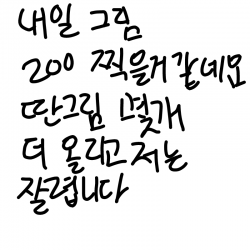 내일 그림
200 찍을거 같네요
딴그림 몇개
더 올리고 저는
잘렵니다